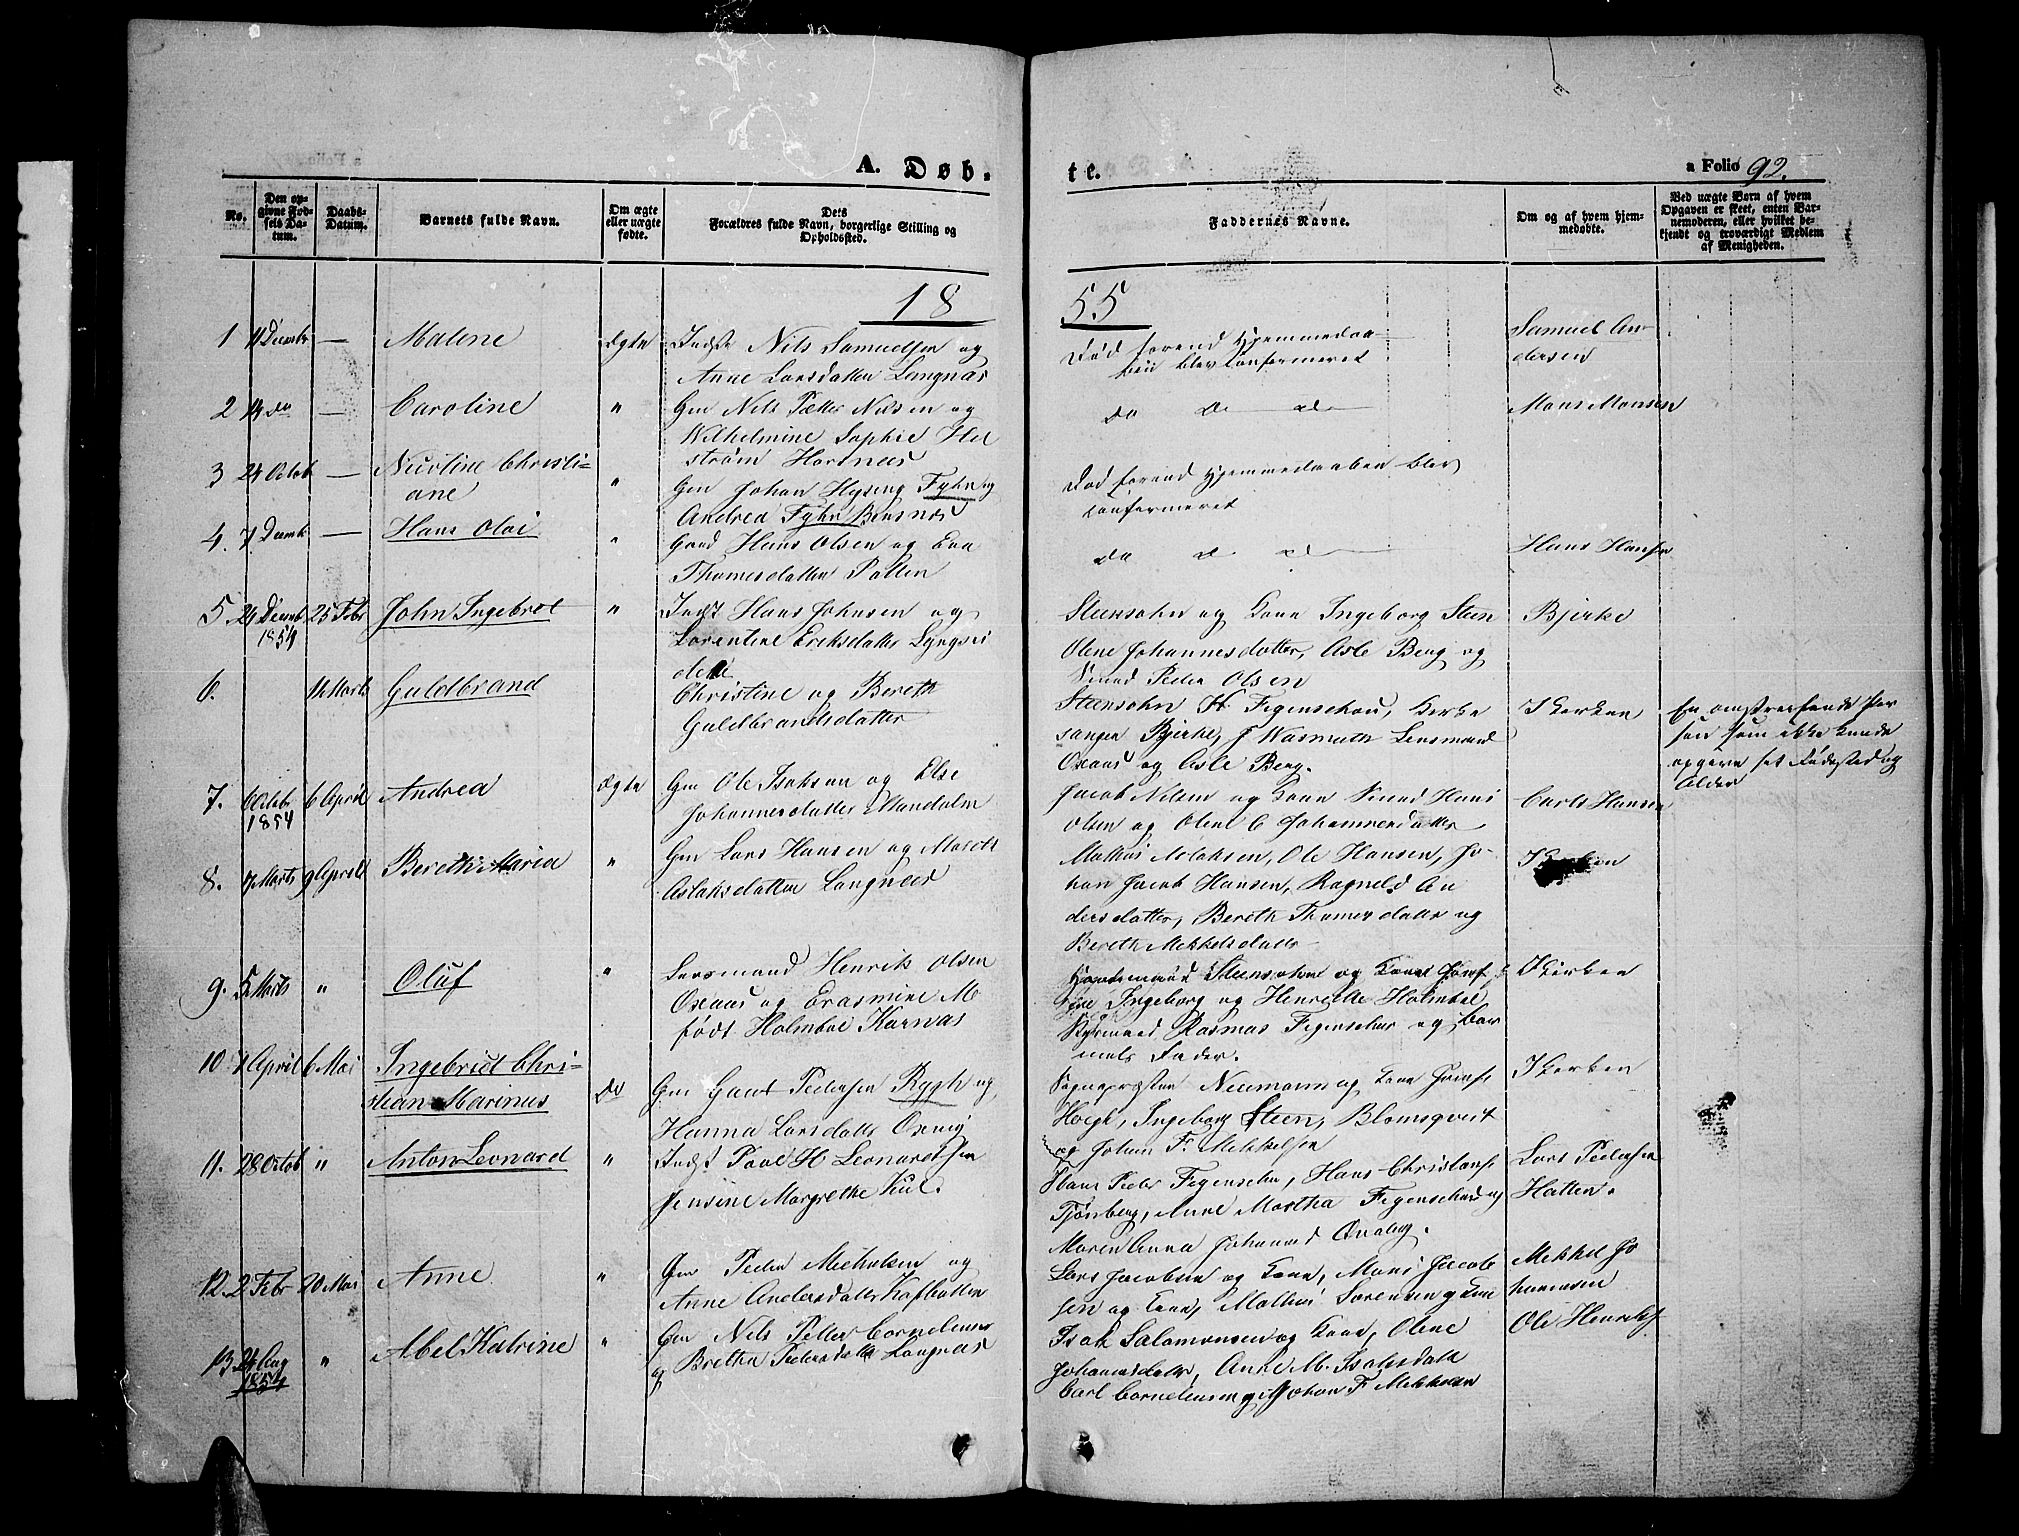 A. Døb.
te.
a Folio 92.
No.
Den op-
givne Fød-
sels Da-
tum.
Daabs-
Datum.
Barnets fulde Navn.
Om ægte
eller uægte
fødte.
Dets
Forældres fulde Navn, borgerlige Stilling og
Opholdssted.
Faddernes Navne.
Om og af hvem hjem-
medøbte.
Ved uægte Børn af hvem
Opgaven er skeet, enten Bar-
nemoderen, eller hvilket be-
kjendt og troværdigt Medlem
af Menigheden.
18
55
1 11 Decemb — Malene ægte Indst Nils Samuelsen og
Anne Larsdatter Langnæs
Død forend Hjemmedaa-
ben blev confermeret
Samuel An-
dersen
2 14 do — Caroline " Gm Nils Petter Nilsen og
Wilhelmine Sophie Hel
strøm Hornæs
do d d
Mons Monsen
3 24 Octob — Nicoline Christi-
ane
" Gm Johan Hysing Fyhn og
Andrea Fyhn Bensnæs
Død forend Hjemmedaaben blev
confermeret
4. 7. Decemb — Hans Olai " Gaard Hans Olsen og Eva
Thomesdatter Pollen
do d d
Hans Hansen
5. 24 Decemb
1854
25 Febr John Ingebrot " Indst Hans Johnsen og
Lorentine Eriksdatter Lyngsei
det
Steensohn og Kone Ingeborg Steen
Olene Johannesdatter, Asle Berg og
Peder Olsen
Bjerke
6. 14 Marts Guldbrand Christine og Bereth
Guldbrandsdatter
Steensohn H Figenschou, Kirke
sanger Bjerke, J Wasmuth Lensmand
Oxaas og Asle Berg.
I Kirken
En omstreifende Per
son som ikke kunde
opgive sit Fødested og
Alder
7. 6 Octobr
1854
6 April Andrea ægte Gm Ole Isaksen og Else
Johannesdatter Mandalen
Jacob Nilsen og Kone Hans
Olsen og Olene C Johannesdatter
Carls Hansen
8. 7 Marts 9 April Bereth Maria " Gm Lars Hansen og Mareth
Aslaksdatter Langnæs
Mathis Aslaksen, Ole Hansen, Jo-
han Jacob Hansen, Ragnild An
dersdatter, Bereth Thomesdatter og
Bereth Mikkelsdatter
I Kirken
9. 5 Marts " Oluf " Lensmand Henrik Olsen
Oxaas og Erasmine M
født Holmboe Karnæs
Steensohn og Kone Jomf
Ingeborg og Henrette Holmboe,
Rasmus Figenschou og Bar
nets Fader.
I Kirken
10. 7 April 6 Mai Ingebrigt Chri-
stian Marinus
Do Gm Gaut Pedersen Rygh og
Hanna Larsdatter Oxvig
Sognepræsten Neumann og Kone Jomf
Hoegh, Ingeborg Steen, Blomqvist
og Johan F. Mikkelsen
I Kirken
11. 28 Octob " Anton Leonard " Indst Paul H Leonardtsen
Jensine Margrethe Kiil.
Hans Peder Figenschou, Hans Christians
Tjønberg, Anne Martha Figenschou og
Maren Anna Johanne
Lars Pedersen
Hatten.
12. 2 Febr 20 Mai Anne " Gm Peder Michalsen og
Anne Andersdatter Kofhatten
Lars Jacobsen og Kone, Mons Jacob
sen og Kone, Mathis Sørensen og Kone
Mikkel Jo
hannesen
13. 24 Aug
1854
" Abel Katrine " Gm Nils Petter Cornelius
og Bretha Pedersdatter Langnæs
Isak Salamonsen og Kone, Olene
Johannesdatter, Anne M. Isaksdatter
Carl Cornelius og Johan F Mikkelsen
Ole Henriks